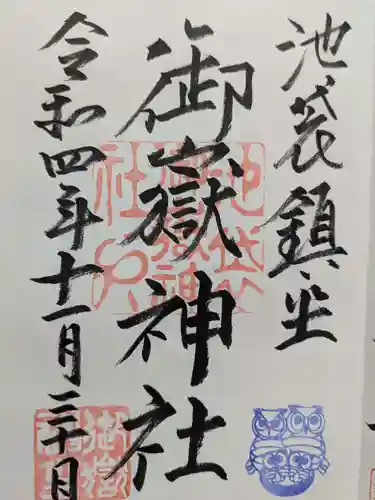 池袋鎮坐
御嶽神社
令和四年十一月三十日